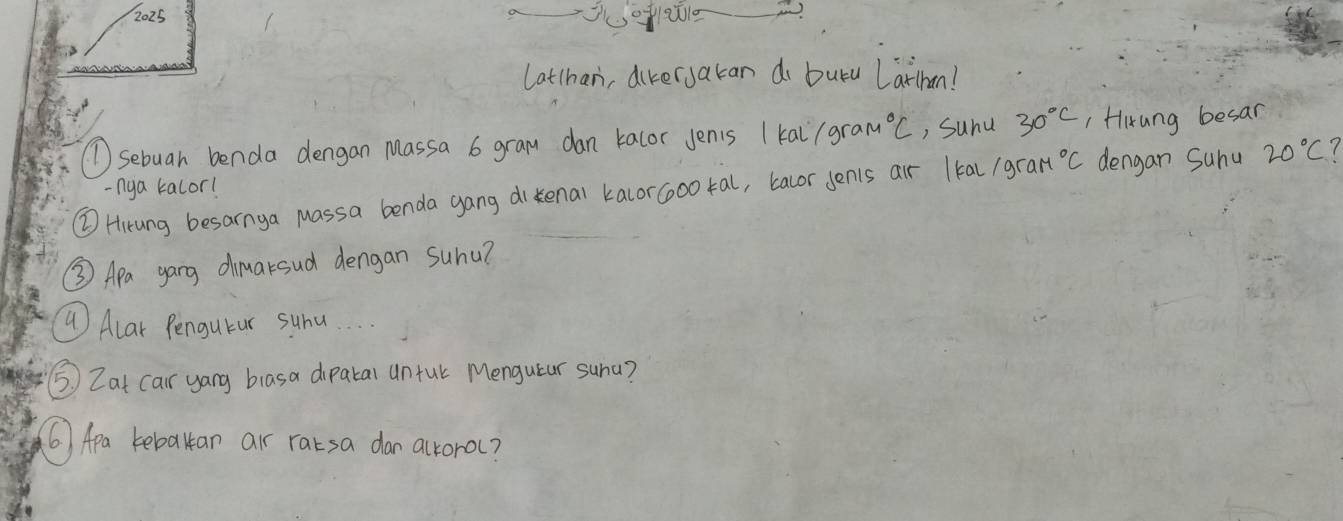 2025
Latihan, dikerjakan di buku Latihan!
① Sebuah benda dengan Massa 6 gram dan kalor jenis 1 kal/gram°C, Suhu 30°C, Hitung besar
-nya kalor!
② Hitung besarnya Massa benda yang dikenai kalor 600 kal, kalor jenis air 1 kal/gram°C dengan Suhu 20°C?
③ Apa yang dimaksud dengan Suhu?
④ Alat Pengukur suhu....
⑤ Zat cair yang biasa dipakai untuk Mengukur suhu?
⑥ Apa kebaikan air raksa dan alkohol?